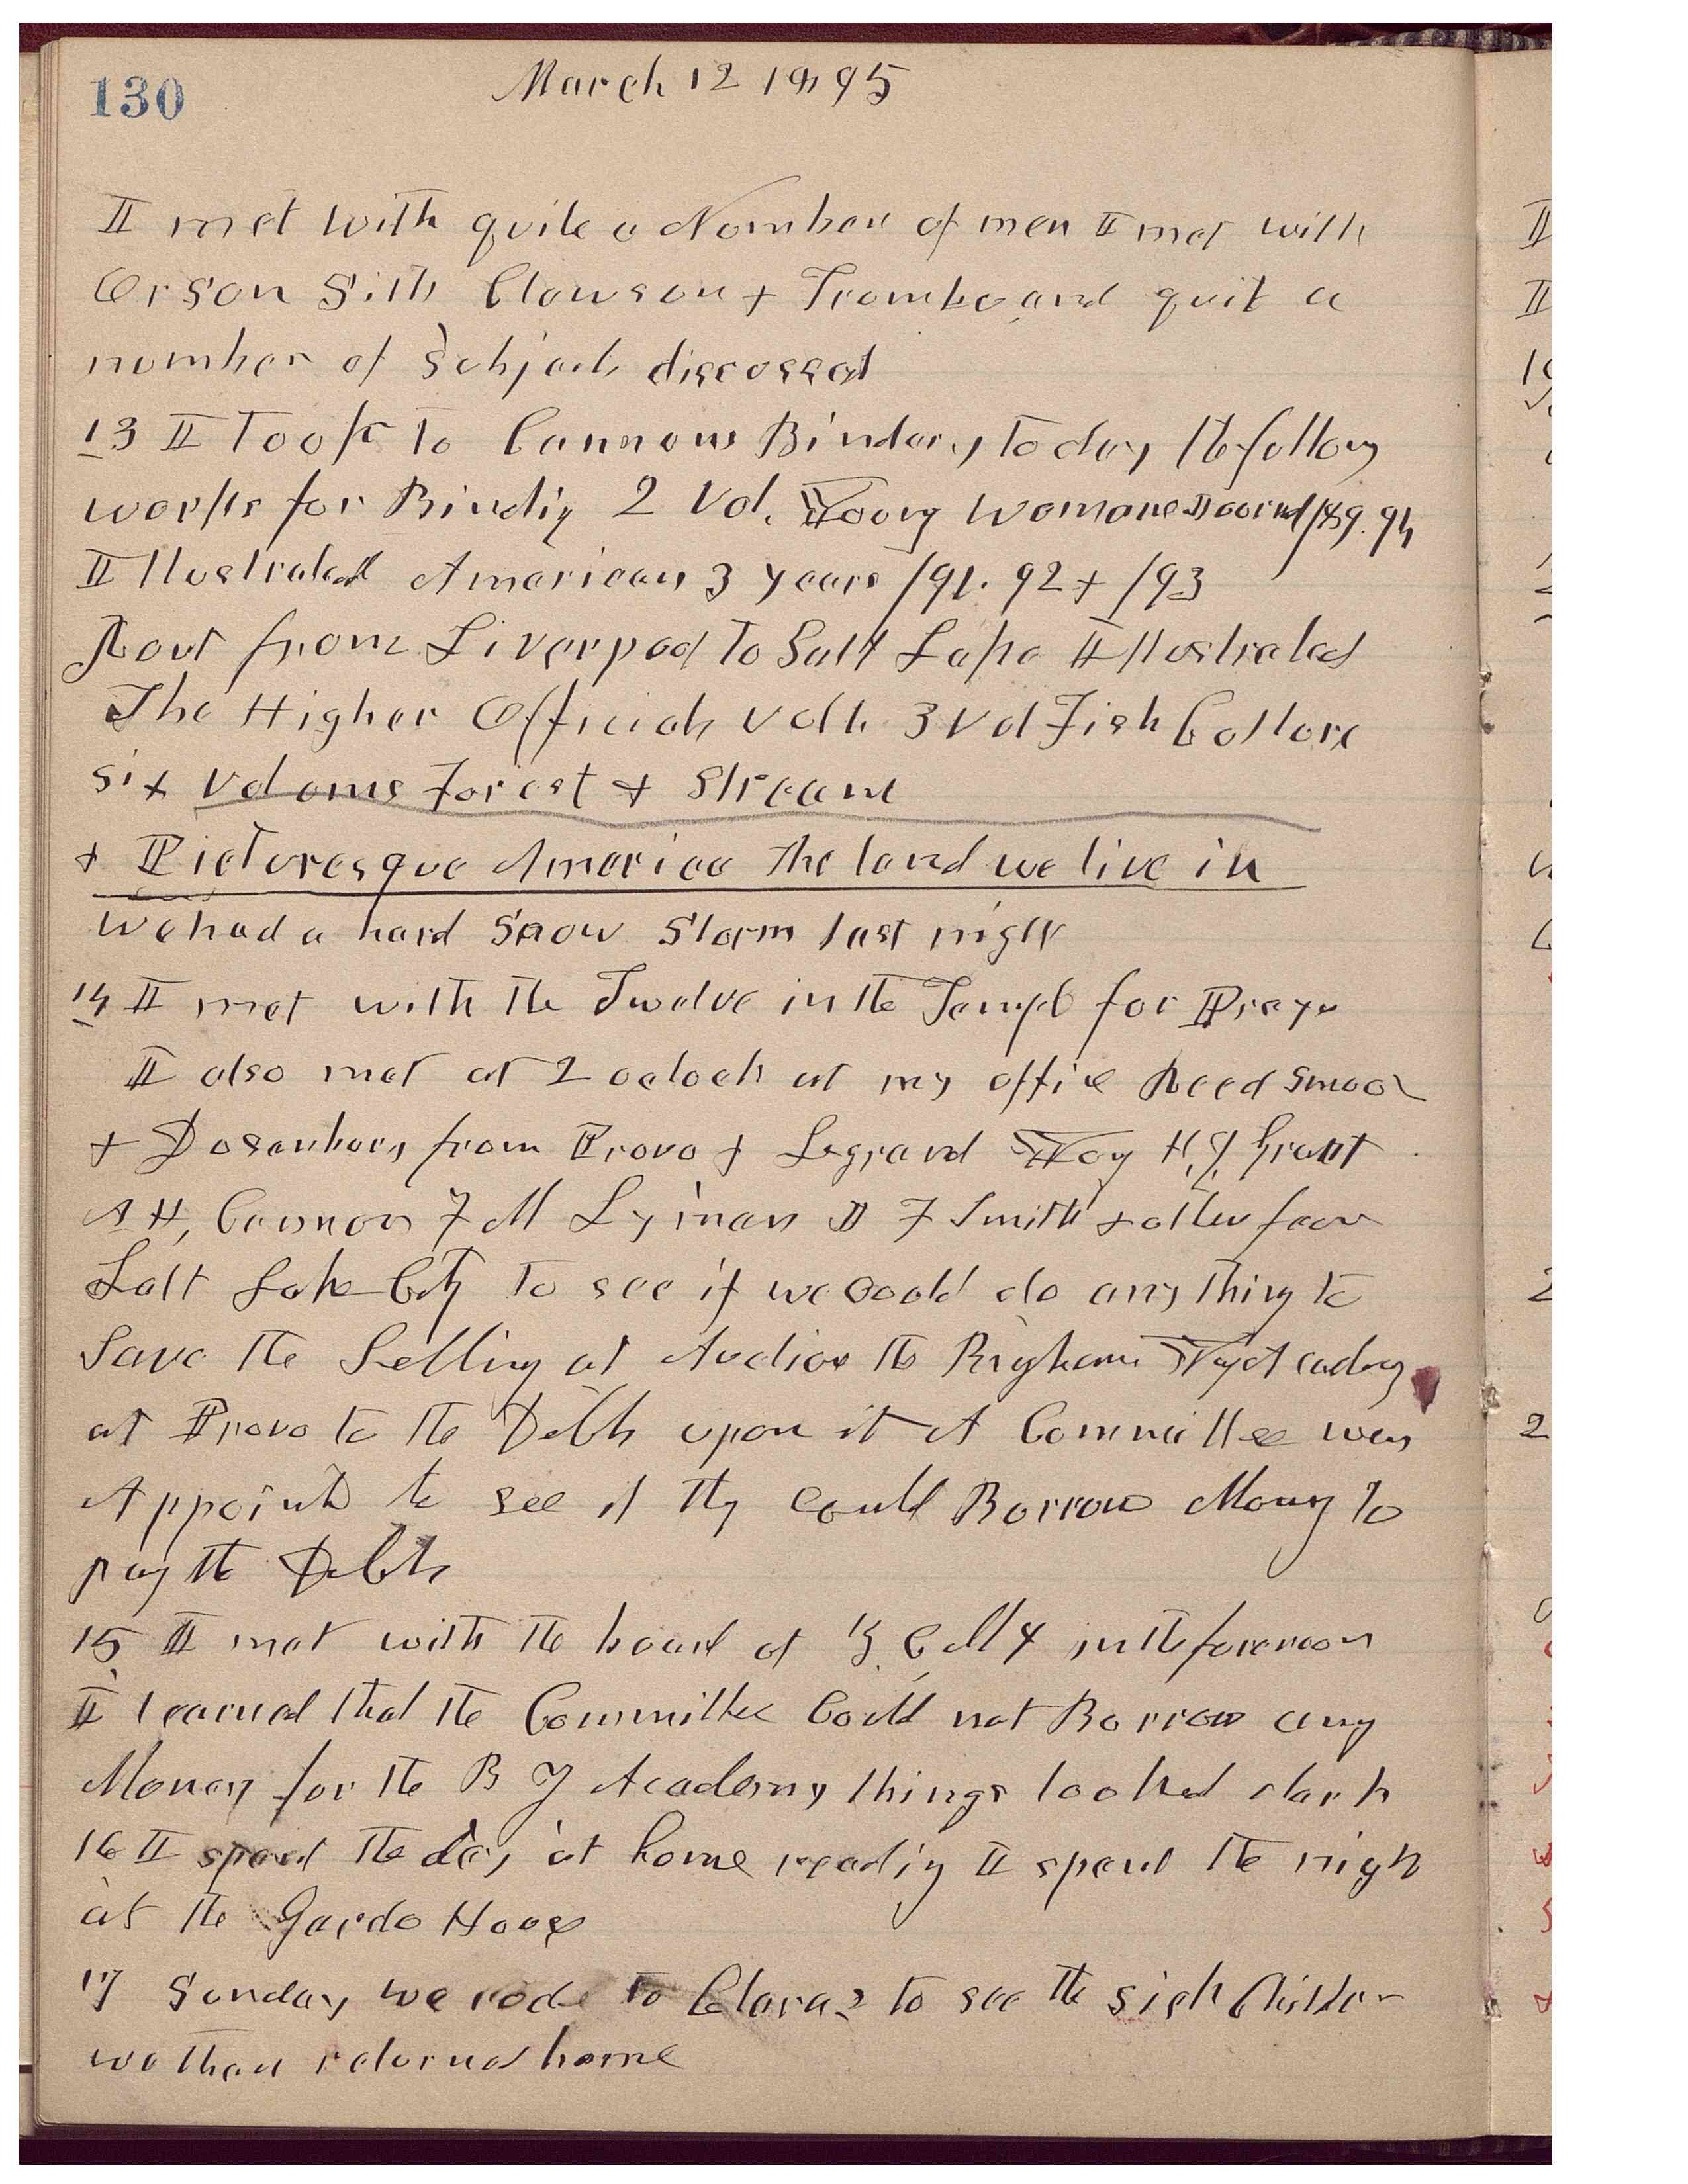 130
March 12 1895
I met with quite a Number of men I met with
Orson Sith Clawson + Trombo and quit a
number of Subjects discussed
13 I Took To Cannons Bindery To day the follow
works for Binding 2 Vol. Young Womans Journal /89. 94
Illustrated American 3 years /91. 92 + /93
Rout from Liverpool To Salt Lake Illustrated
The Higher Officials Voll. 3 Vol Fish Culture
six volums Forest + Stream
+ Picturesque America the land we live in
we had a hard Snow Storm last night
14 I met with the Twelve in the Templ for Prayr
I also met at 2 oclock at my office Reed Smoot
+ Dosenbery from Provo + Legrand Young H. J. Grant
A H, Cannon F M Lyman J F Smith + other from
Salt Lake City to see if we could do any thing to
Save the Selling at Auction the Brigham Yg Academy
at Provo to the Debts upon it A Committee was
Appointd to see if thy could Borrow Money to
pay the Debts
15 I met with the board of Z. C. M I in the forenoon
I learned that the Committee Could not Borrow any
Money for the B Y Academy things looked dark
16 I spent the day at home reading I spent the nigh
at the Gardo House
17 Sunday we rode to Claras to see the sick Children
we than returned home